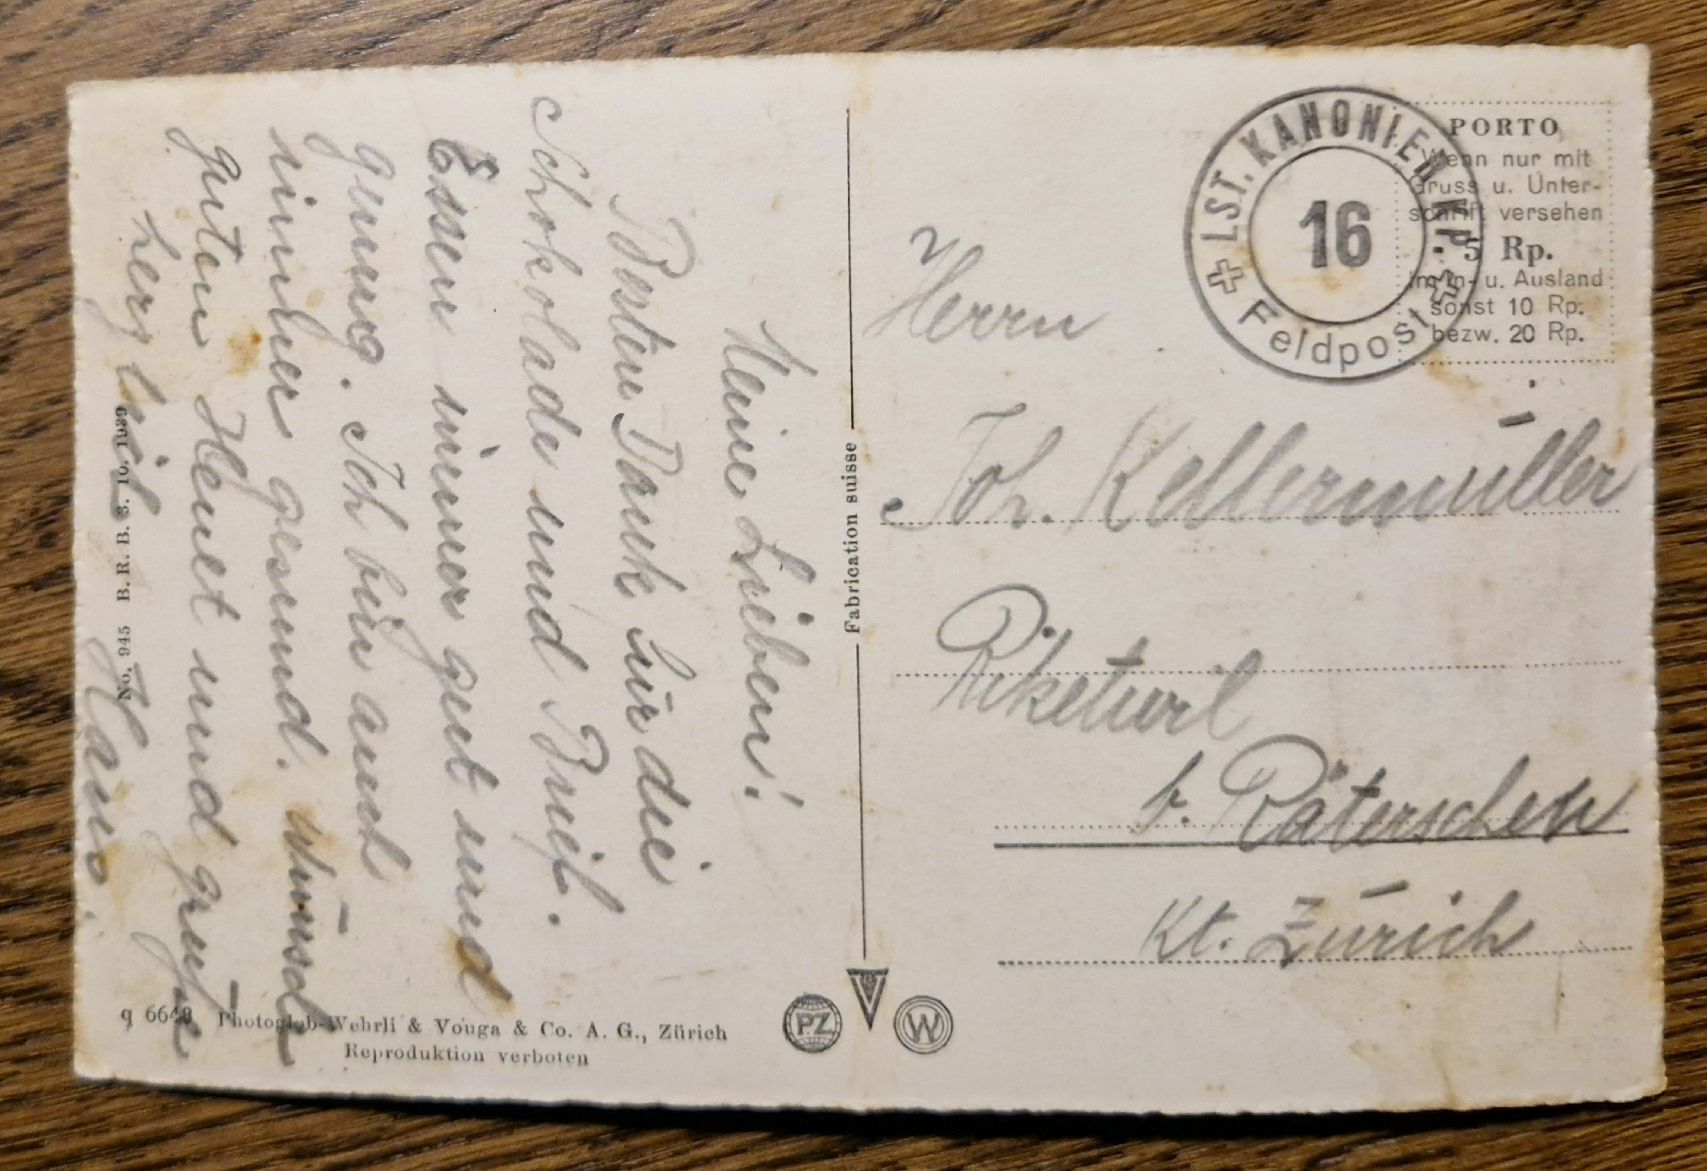 Meine Lieben!
Besten Dank für die
Schokolade und Brief.
Essen immer gut und
genug. Ich bin auch
immer gesund. Wünsch
guten Heuet und grüsse
herzlich
Hans.
No. 945 B. R. B. 3. 10. 1939
q 6648 Photoglob-Wehrli & Vouga & Co. A. G., Zürich
Reproduktion verboten
Fabrication suisse
PZ
V
W
LST. KANONIER KP.
16
Feldpost
PORTO
Wenn nur mit
Gruss u. Unter-
schrift versehen
5 Rp.
im In- u. Ausland
sonst 10 Rp.
bezw. 20 Rp.
Herrn
Joh. Kellermüller
Riketwil
b. Räterschen
Kt. Zürich